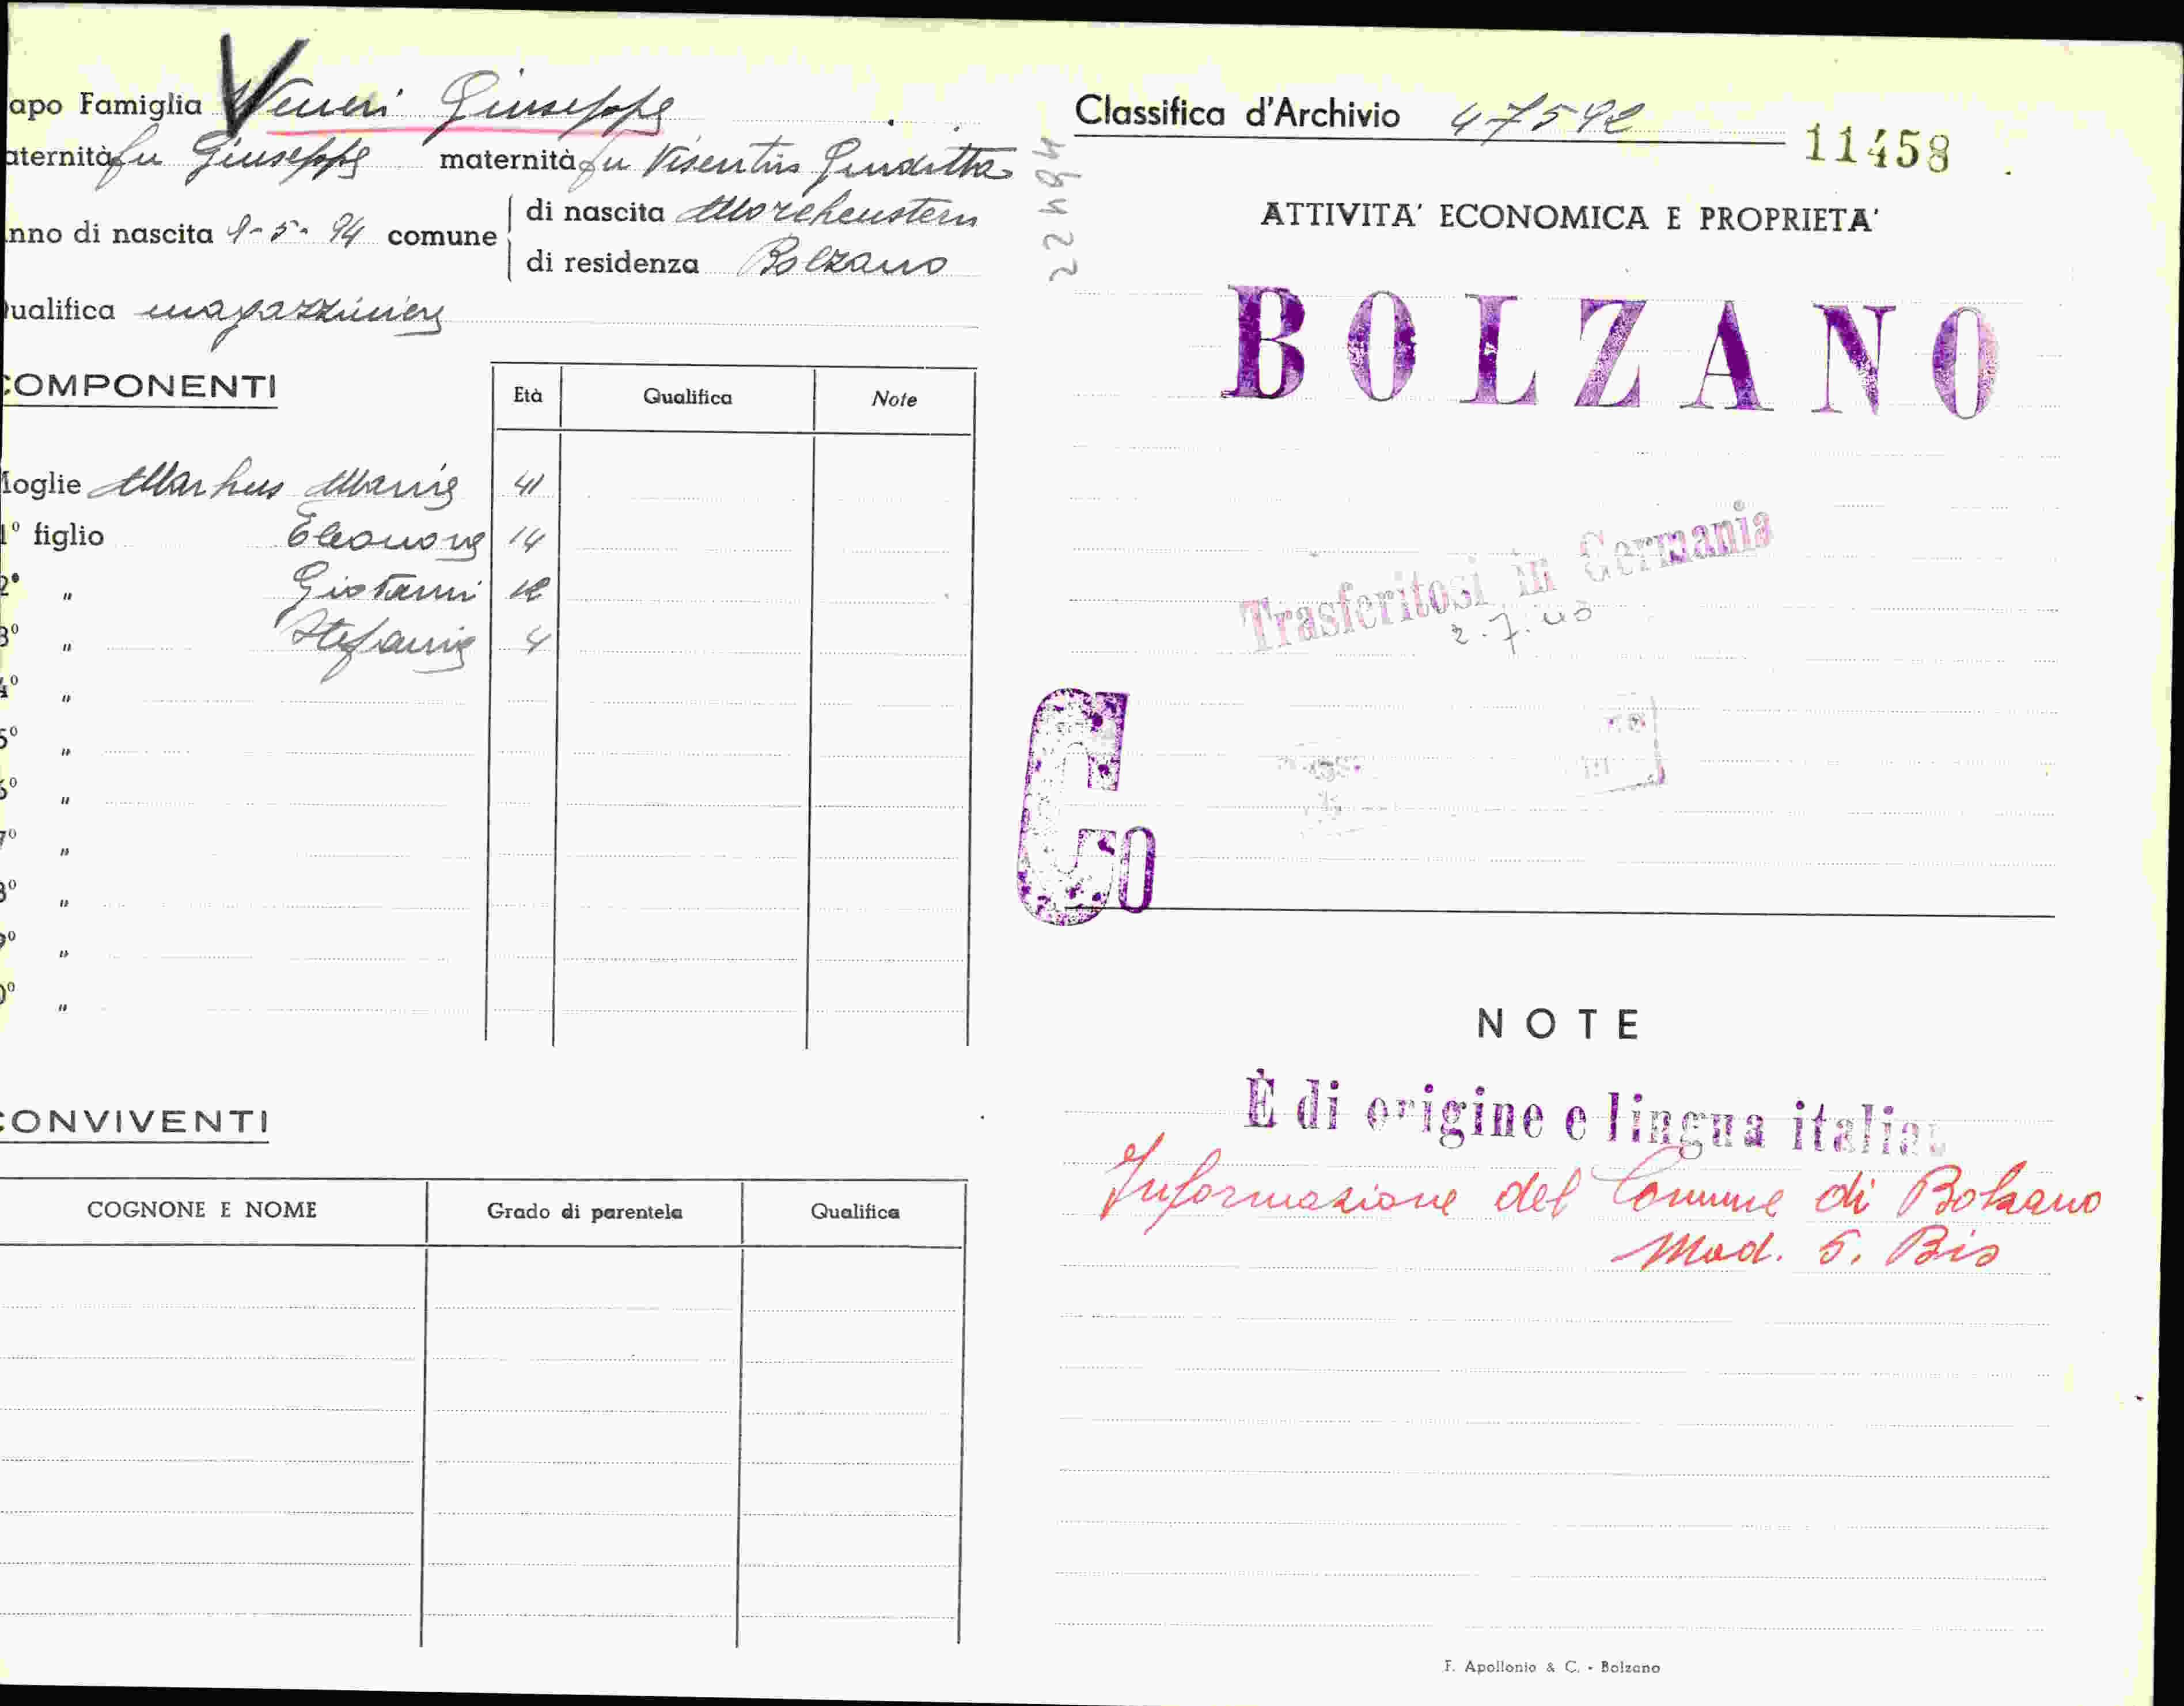 apo Famiglia Veneri Giuseppe
aternità fu Giuseppe maternità fu Visentin Giuditta
nno di nascita 9-5-94 comune di nascita Morchenstern
di residenza Bolzano
ualifica magazziniere
COMPONENTI
Età Qualifica Note
Moglie Markus Maria 41
1º figlio Eleonora 14
2º " Giovanni 12
3º " Stefania 4
4º "
5º "
6º "
7º "
8º "
9º "
0º "
CONVIVENTI
COGNONE E NOME Grado di parentela Qualifica
Classifica d'Archivio 47592
11458
22494
ATTIVITA' ECONOMICA E PROPRIETA'
BOLZANO
Trasferitosi in Germania
2.7.40
G
50
NOTE
È di origine e lingua italia
Informazione del Comune di Bolzano
Mod. 5. Bis
F. Apollonio & C. - Bolzano